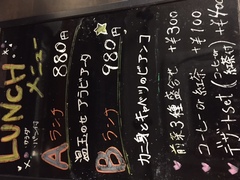 LUNCH
メニュー
サラダ
パン付
Aランチ 880円
温玉のせアラビアータ
Bランチ 980円
カニ身とキャベツのビアンコ
前菜3種盛合せ +¥300
コーヒーor紅茶 +¥100
デザートセット(コーヒーor紅茶付) +¥400